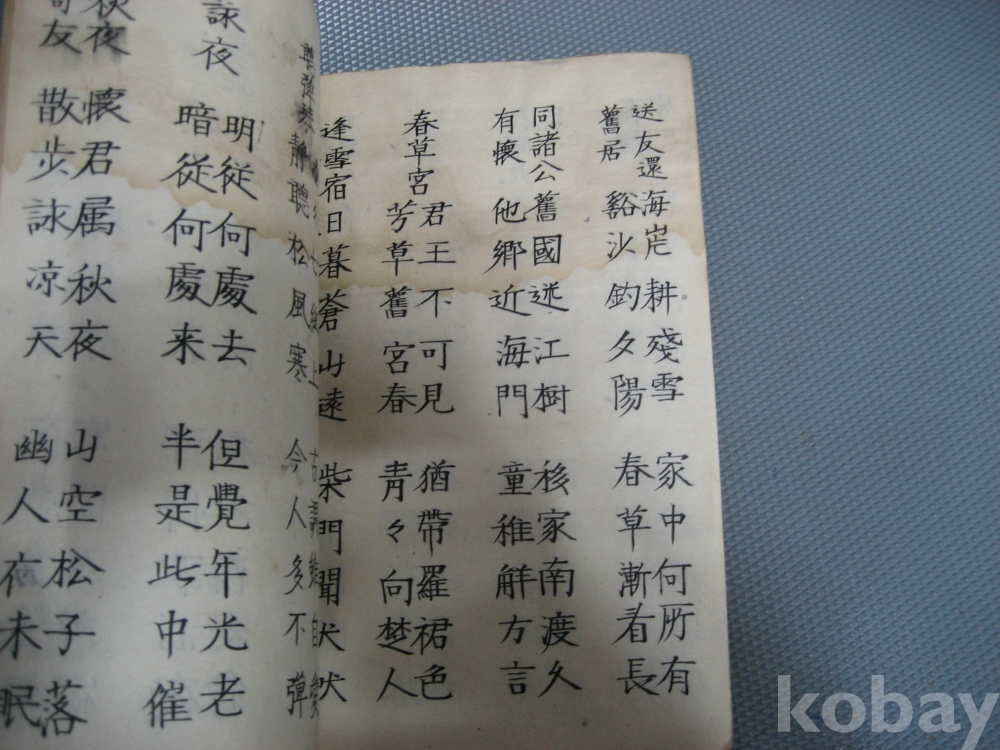 送友還海岸耕殘雪 家中何所有
舊居谿沙釣夕陽 春草漸看長
同諸公舊國迷江樹 移家南渡久
有懷他鄉近海門 童稚觧方言
春草宮
君王不可見 猶帶羅裙色
芳草舊宮春 青々向楚人
逢雪宿日暮蒼山遠 柴門聞犬吠
七絃上 古
彈琴靜聽松風寒 今人多不彈
詠夜
明從何處去 但覺年光老
暗從何處来 半是此中催
秋夜懷君属秋夜 山空松子落
友散步詠凉天 幽人夜未眠
kobay